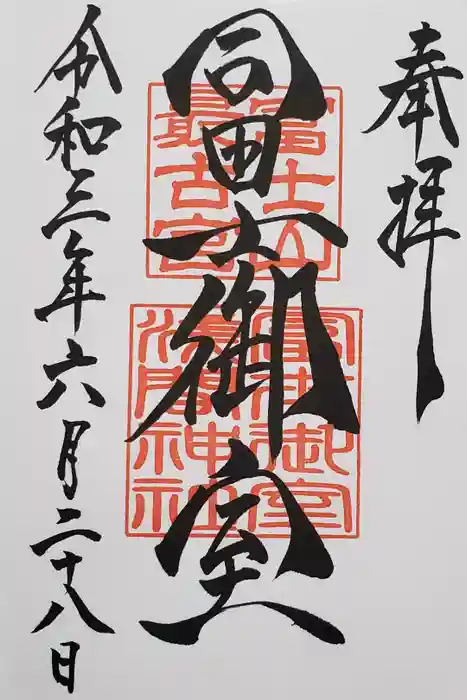 奉拝
冨士御室
富士山
最古宮
冨士御室
浅間神社
令和三年六月二十八日